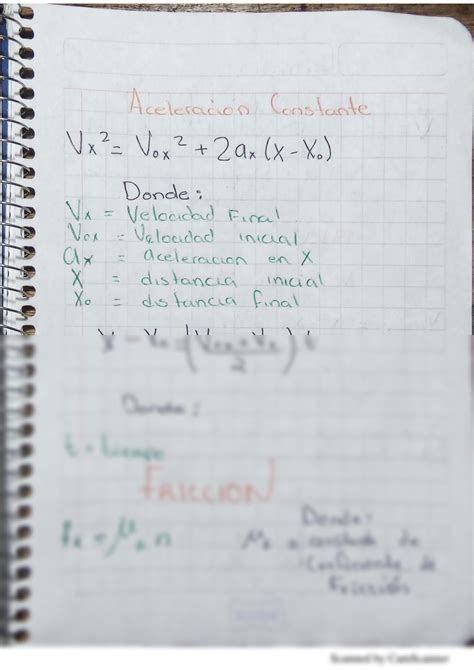 Aceleración Constante
Vx² = Vox² + 2ax (x - Xo)
Donde:
Vx = Velocidad Final
Vox = Velocidad inicial
ax = aceleracion en X
X = distancia inicial
Xo = distancia final
Donde:
t = tiempo
FRICCION
Donde:
de
de
Fricción
Scanned by CamScanner